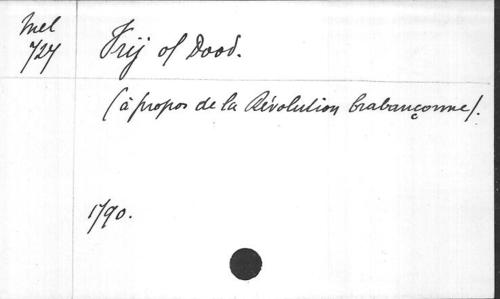 Mel
727
Vrij of Dood.
(à propos de la Révolution brabançonne).
1790.